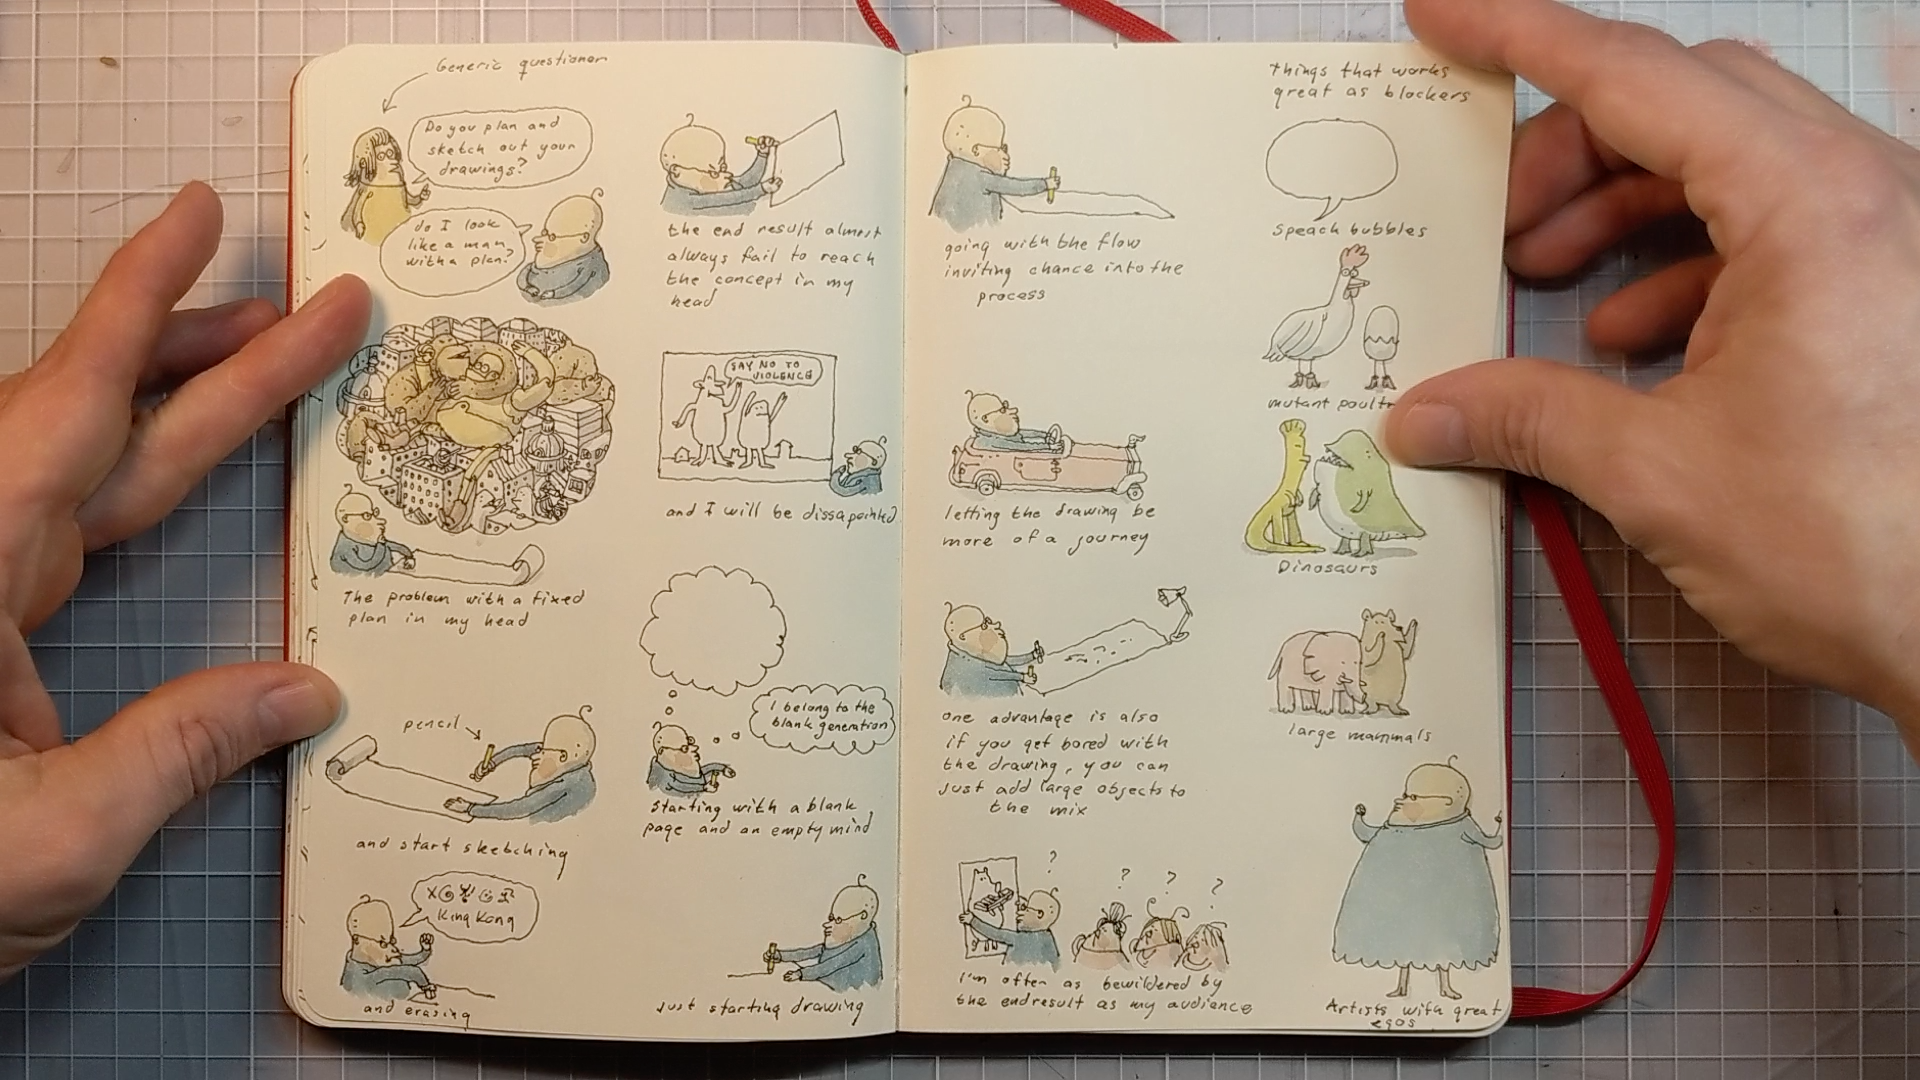 Generic questioner
Do you plan and
sketch out your
drawings?
do I look
like a man
with a plan?
The problem with a fixed
plan in my head
pencil
and start sketching
King Kong
and erasing
the end result almost
always fail to reach
the concept in my
head
SAY NO TO
VIOLENCE
and I will be dissapointed
I belong to the
blank generation
starting with a blank
page and an empty mind
Just starting drawing
going with the flow
inviting chance into the
process
letting the drawing be
more of a journey
one advantage is also
if you get bored with
the drawing, you can
just add large objects to
the mix
? ? ? ?
I'm often as bewildered by
the endresult as my audience
Things that works
great as blockers
speach bubbles
mutant poultr
Dinosaurs
large mammals
Artists with great
egos